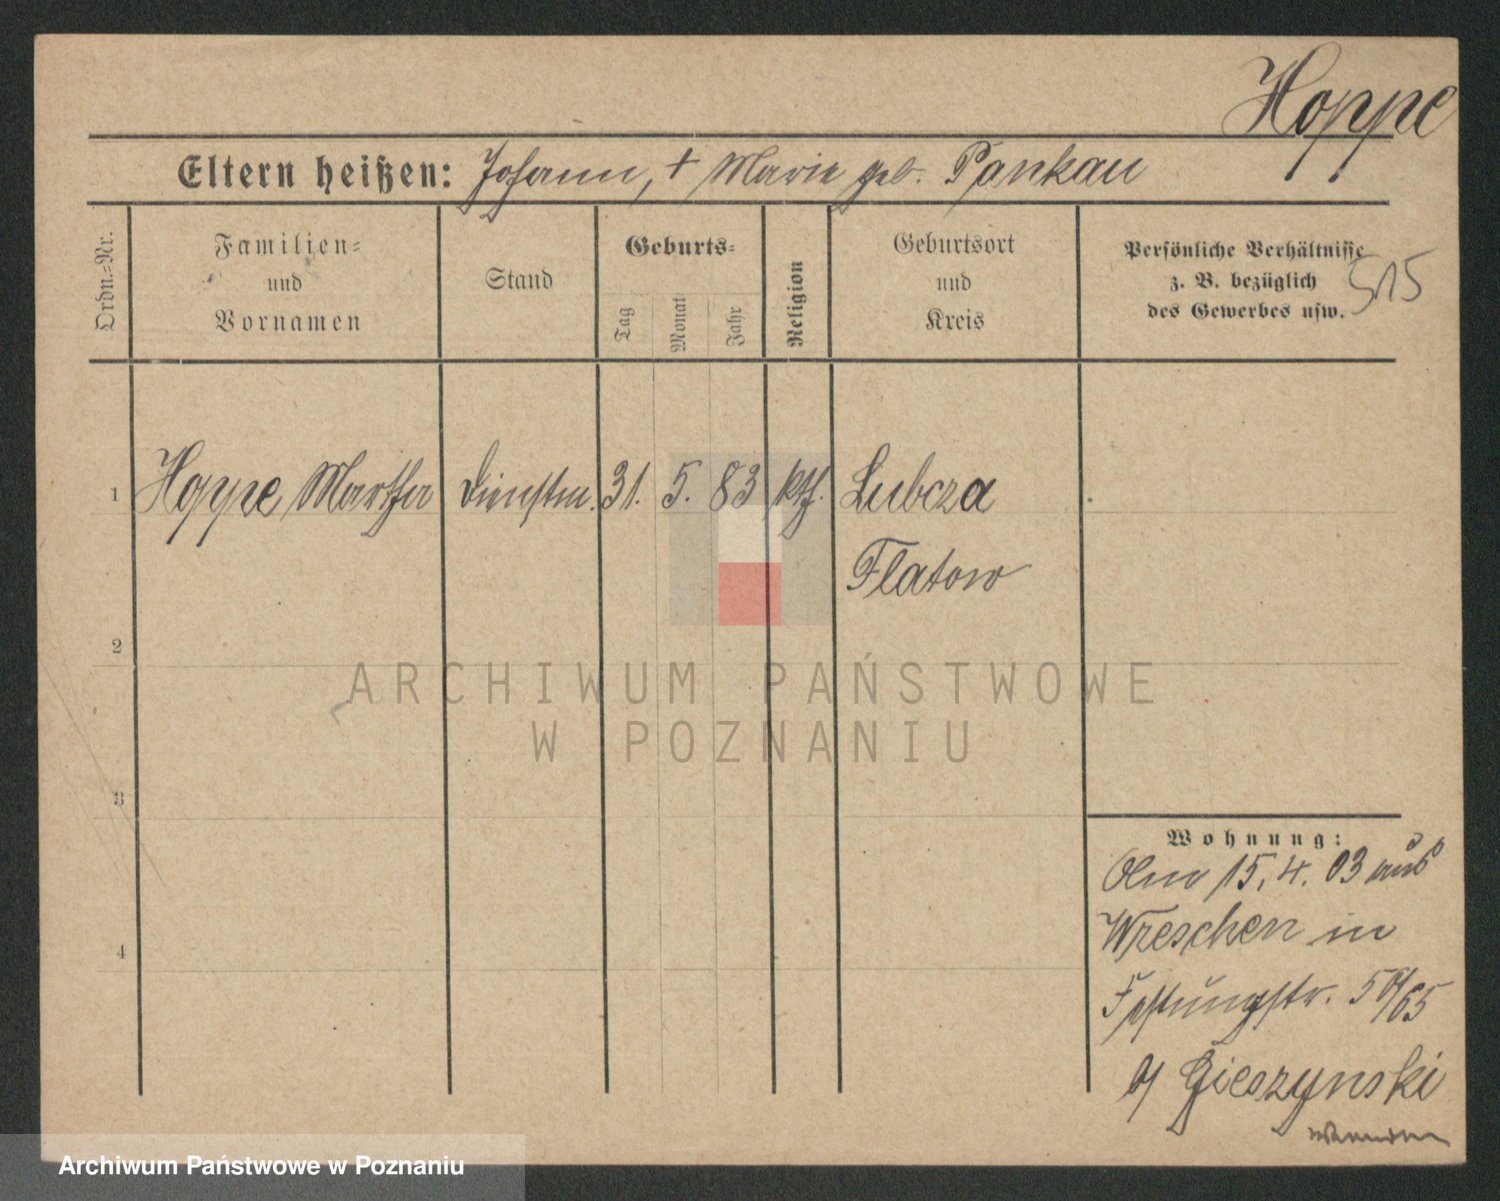 Hoppe
Eltern heißen: Johann, + Marie geb. Pankau
Ordn.=Nr.
Familien=
und
Vornamen
Stand
Geburts=
Tag
Monat
Jahr
Religion
Geburtsort
und
Kreis
Persönliche Verhältnisse
z. B. bezüglich
des Gewerbes usw.
515
1 Hoppe Martha Dienstm. 31. 5. 83 kth. Lubcza
Flatow
2
3
4
ARCHIWUM PAŃSTWOWE
W POZNANIU
Wohnung:
Am 15. 4. 03 aus
Wreschen in
Festungstr.
b/ Gieszynski
Archiwum Państwowe w Poznaniu